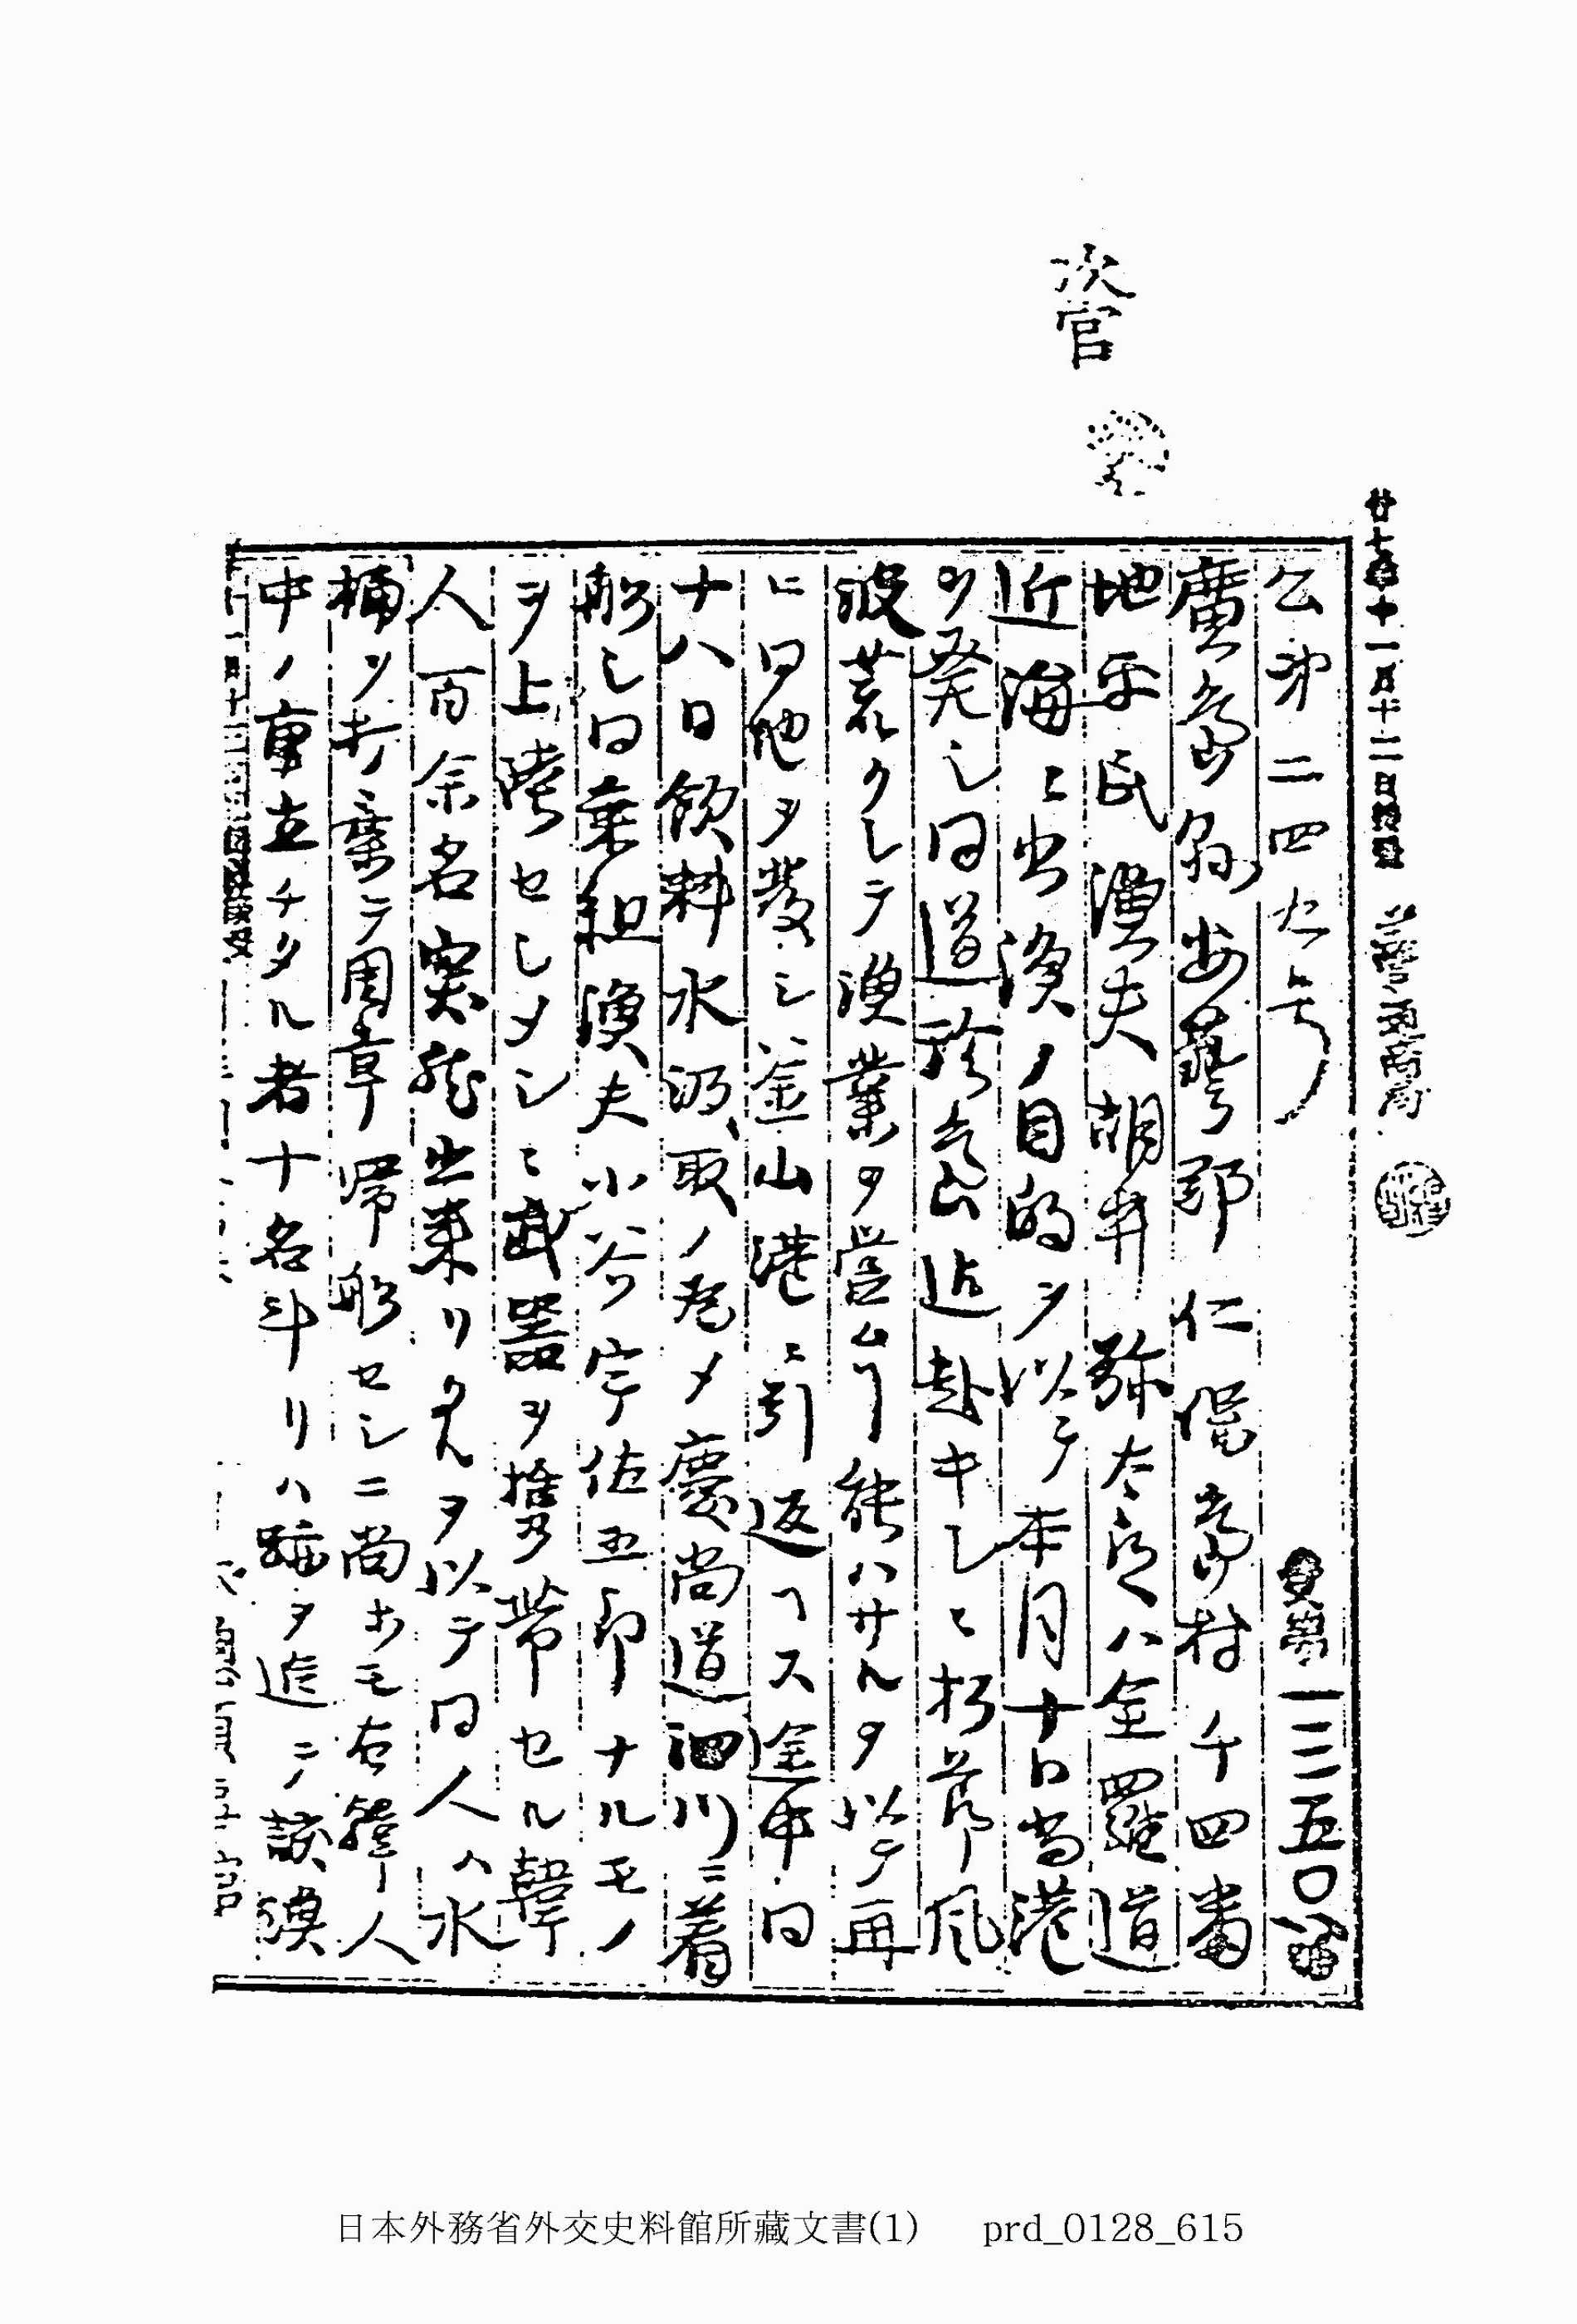 次官
廿七年十一月十二日接受 主管通商局
公第二四九号
受第一三五〇八号
廣島縣安藝郡仁保島村千四番
地平民漁夫胡井弥太郎ハ全羅道
近海ニ出漁ノ目的ヲ以テ本月十日当港
ヲ発シ同道珍島近辺赴キシニ折節風
波荒クシテ漁業ヲ営ムヿ能ハサルヲ以テ再
ヒ同地ヲ發シ釜山港ニ引返ヘス途中同
十八日飲料水汲取ノ為メ慶尚道泗川ニ着
船シ同乗組漁夫小谷宇佐五郎ナルモノ
ヲ上陸セシメシニ武器ヲ携帯セル韓
人百余名突然出来リタルヲ以テ同人ハ水
桶ヲ打棄テ周章帰船セシニ尚ホモ右韓人
中ノ重立チタル者十名斗リハ跡ヲ追ニ該漁
日本外務省外交史料館所藏文書(1) prd_0128_615